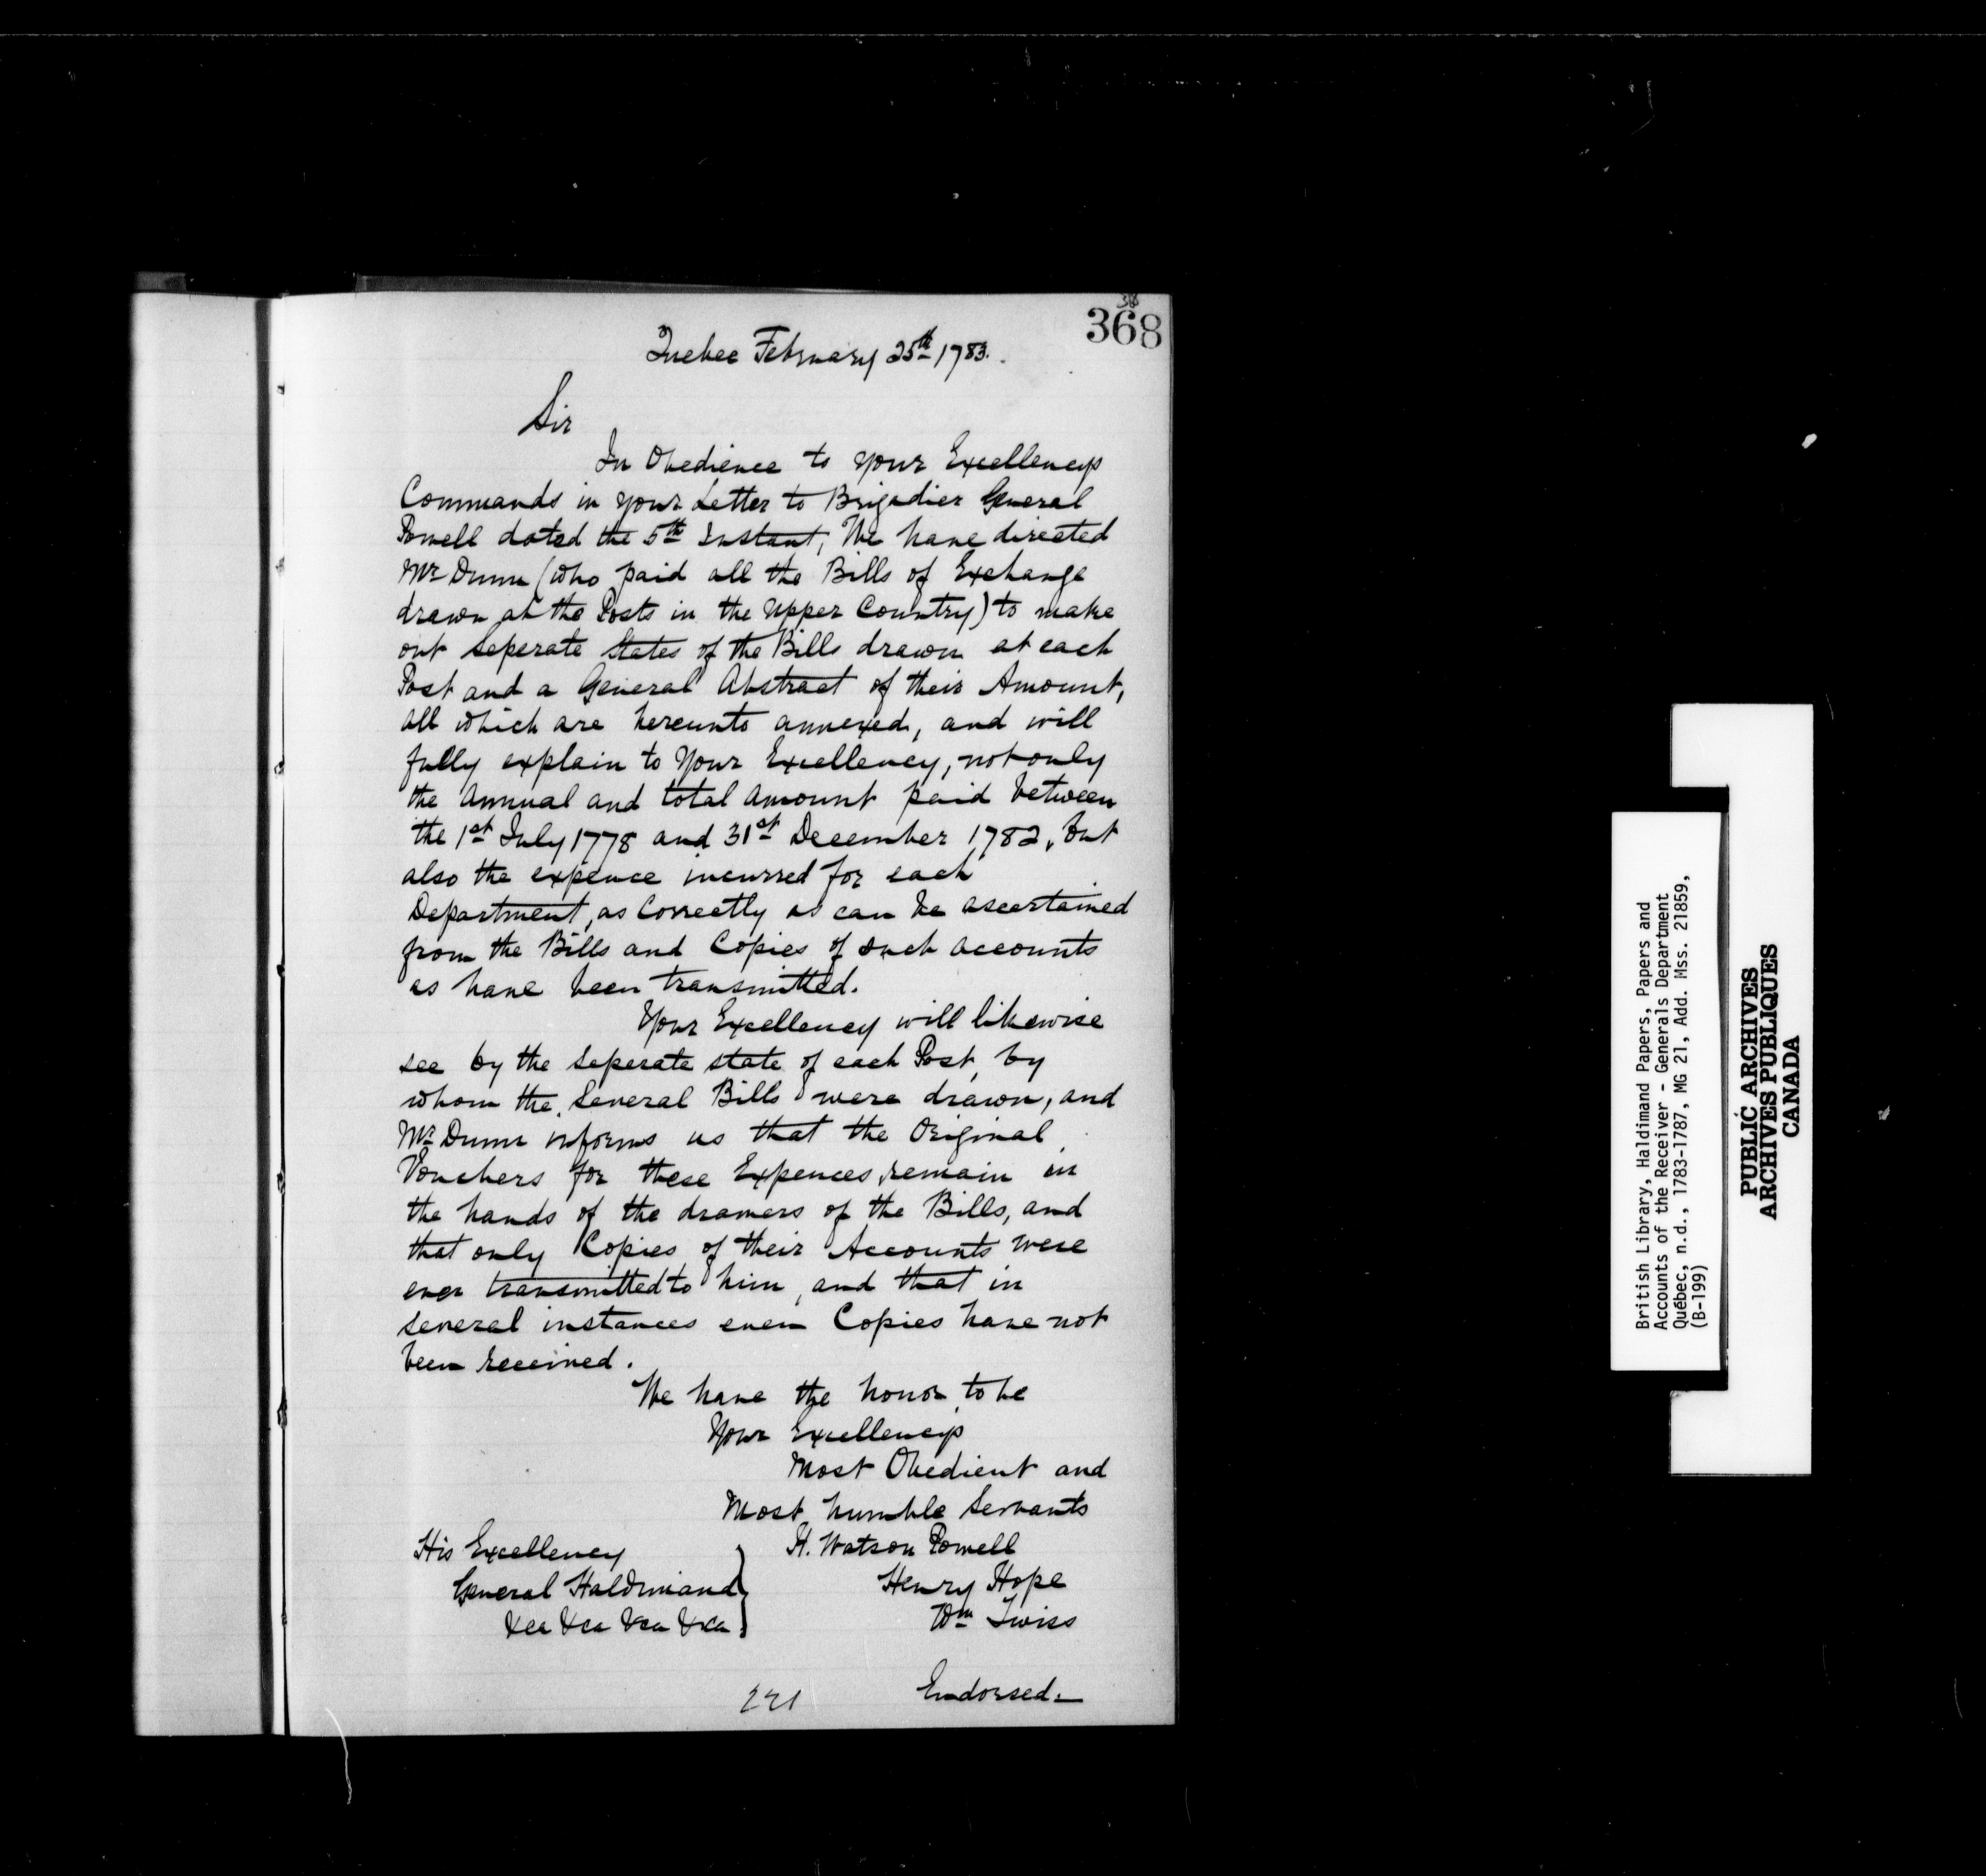 368
Quebec February 25th 1783.
Sir
In Obedience to your Excellencys
Commands in your Letter to Brigadier General
Powell dated the 5th Instant, We have directed
Mr Dunn (who paid all the Bills of Exchange
drawn at the Posts in the Upper Country) to make
out Seperate States of the Bills drawn at each
Post and a General Abstract of their Amount,
all which are hereunto annexed, and will
fully explain to Your Excellency, not only
the Annual and total Amount paid between
the 1st July 1778 and 31st December 1782, but
also the expence incurred for each
Department, as Correctly as can be ascertained
from the Bills and Copies of such accounts
as have been transmitted.
Your Excellency will likewise
see by the Seperate state of each Post, by
whom the Several Bills were drawn, and
Mr Dunn informs us that the Original
Vouchers for these Expences remain in
the hands of the drawers of the Bills, and
that only Copies of their Accounts were
ever transmitted to him, and that in
Several instances even Copies have not
been received.
We have the honor to be
Your Excellencys
Most Obedient and
Most humble Servants
H. Watson Powell
Henry Hope
Wm Twiss
His Excellency
General Haldimand
&ca &ca &ca &ca
Endorsed.
221
British Library, Haldimand Papers, Papers and
Accounts of the Receiver - Generals Department
Québec, n.d., 1783-1787, MG 21, Add. Mss. 21859,
(B-199)
PUBLIC ARCHIVES
ARCHIVES PUBLIQUES
CANADA